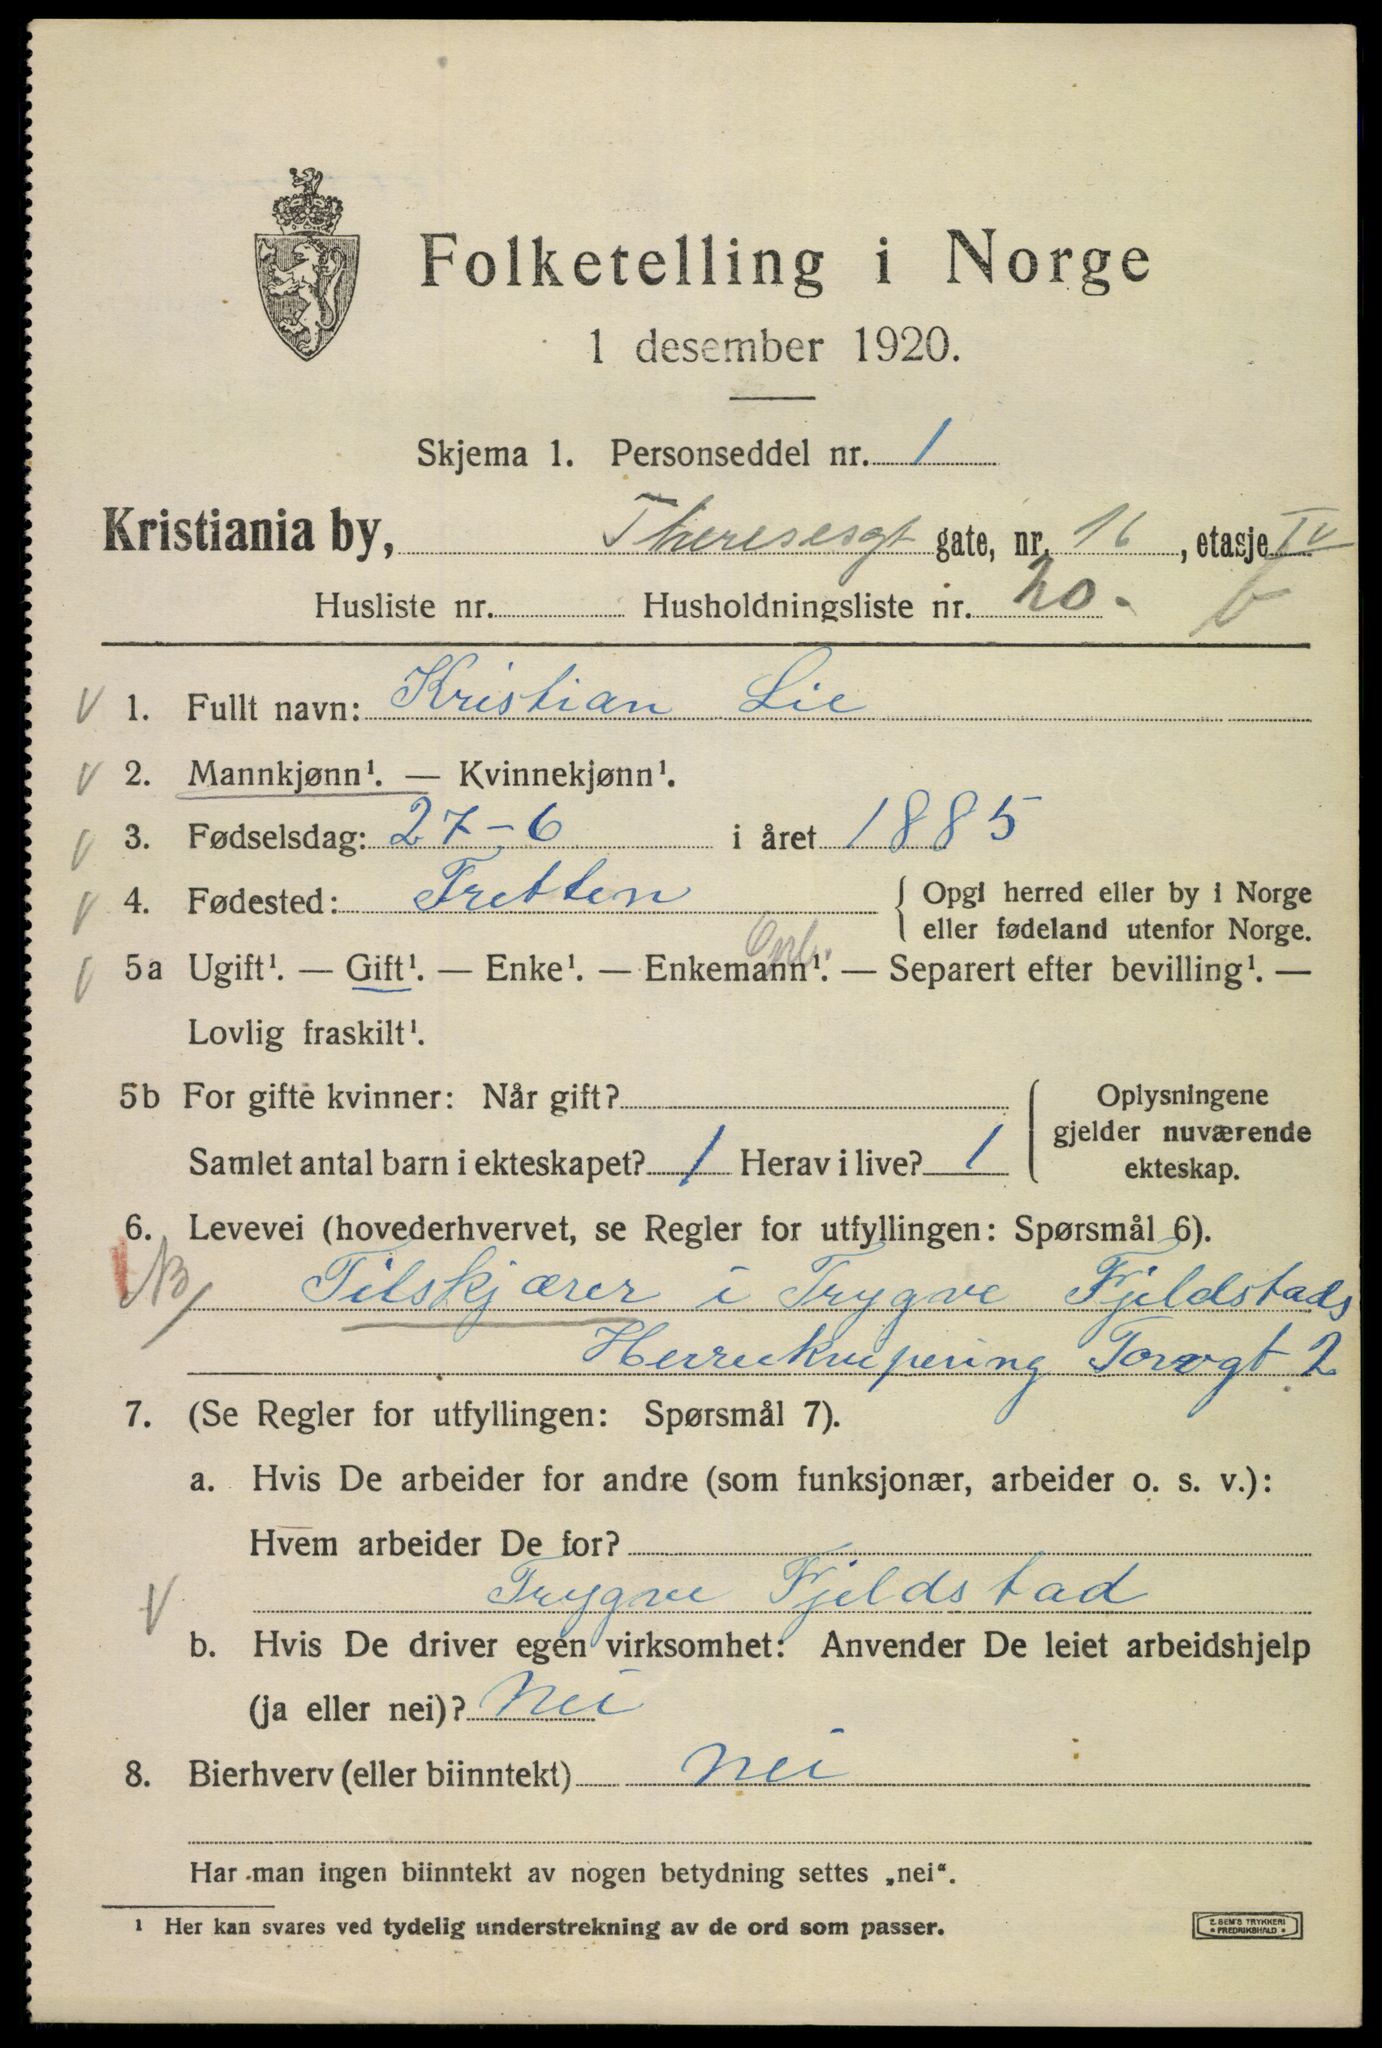 Folketelling i Norge
1 desember 1920.
Skjema 1. Personseddel nr. 1
Kristiania by, Theresesgt gate, nr. 16, etasje IV
Husliste nr. Husholdningsliste nr. 20. b
V 1. Fullt navn: Kristian Lie
V 2. Mannkjønn¹. — Kvinnekjønn¹.
V 3. Fødselsdag: 27-6 i året 1885
V 4. Fødested: Tretten { Opgi herred eller by i Norge
eller fødeland utenfor Norge.
V 5a Ugift¹. — Gift¹. — Enke¹. — Enkemann¹. — Separert efter bevilling¹. —
Lovlig fraskilt¹.
5b For gifte kvinner: Når gift? Oplysningene
gjelder nuværende
Samlet antal barn i ekteskapet? 1 Herav i live? 1
ekteskap.
6. Levevei (hovederhvervet, se Regler for utfyllingen: Spørsmål 6).
NB Tilskjærer i Trygve Fjeldstads
Herrekvipering Torvgt 2
7. (Se Regler for utfyllingen: Spørsmål 7).
a. Hvis De arbeider for andre (som funksjonær, arbeider o. s. v.):
Hvem arbeider De for?
V Trygve Fjeldstad
b. Hvis De driver egen virksomhet: Anvender De leiet arbeidshjelp
(ja eller nei)? Nei
8. Bierhverv (eller biinntekt) nei
Har man ingen biinntekt av nogen betydning settes „nei“.
¹ Her kan svares ved tydelig understrekning av de ord som passer.
E. SEM'S TRYKKERI
* FREDRIKSHALD *